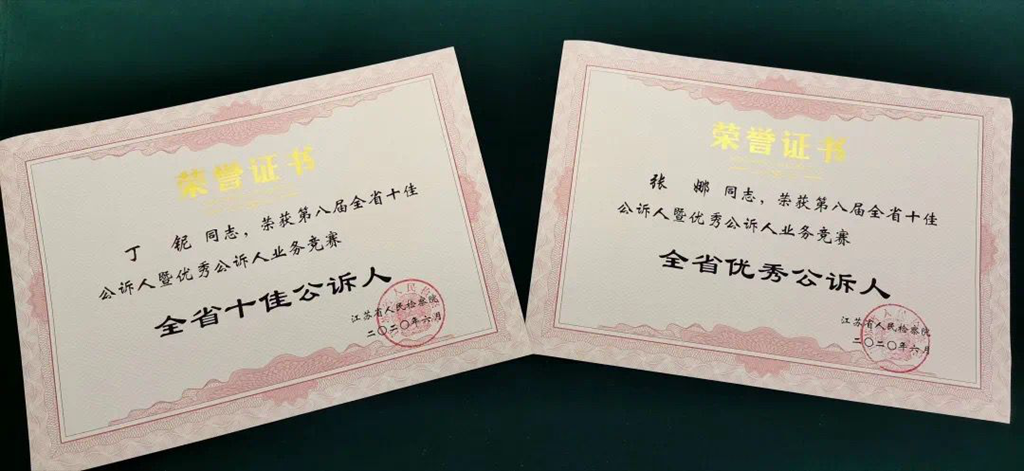 荣誉证书
丁 铌 同志，荣获第八届全省十佳
公诉人暨优秀公诉人业务竞赛
全省十佳公诉人
江苏省人民检察院
二〇二〇年六月
荣誉证书
张 娜 同志，荣获第八届全省十佳
公诉人暨优秀公诉人业务竞赛
全省优秀公诉人
江苏省人民检察院
二〇二〇年六月